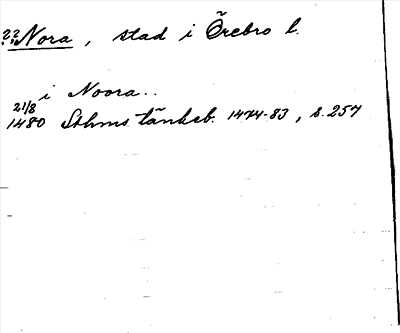 ?? Nora, stad i Örebro l.
i Noora..
21/8
1480 Sthms tänkeb. 1474-83, s. 257